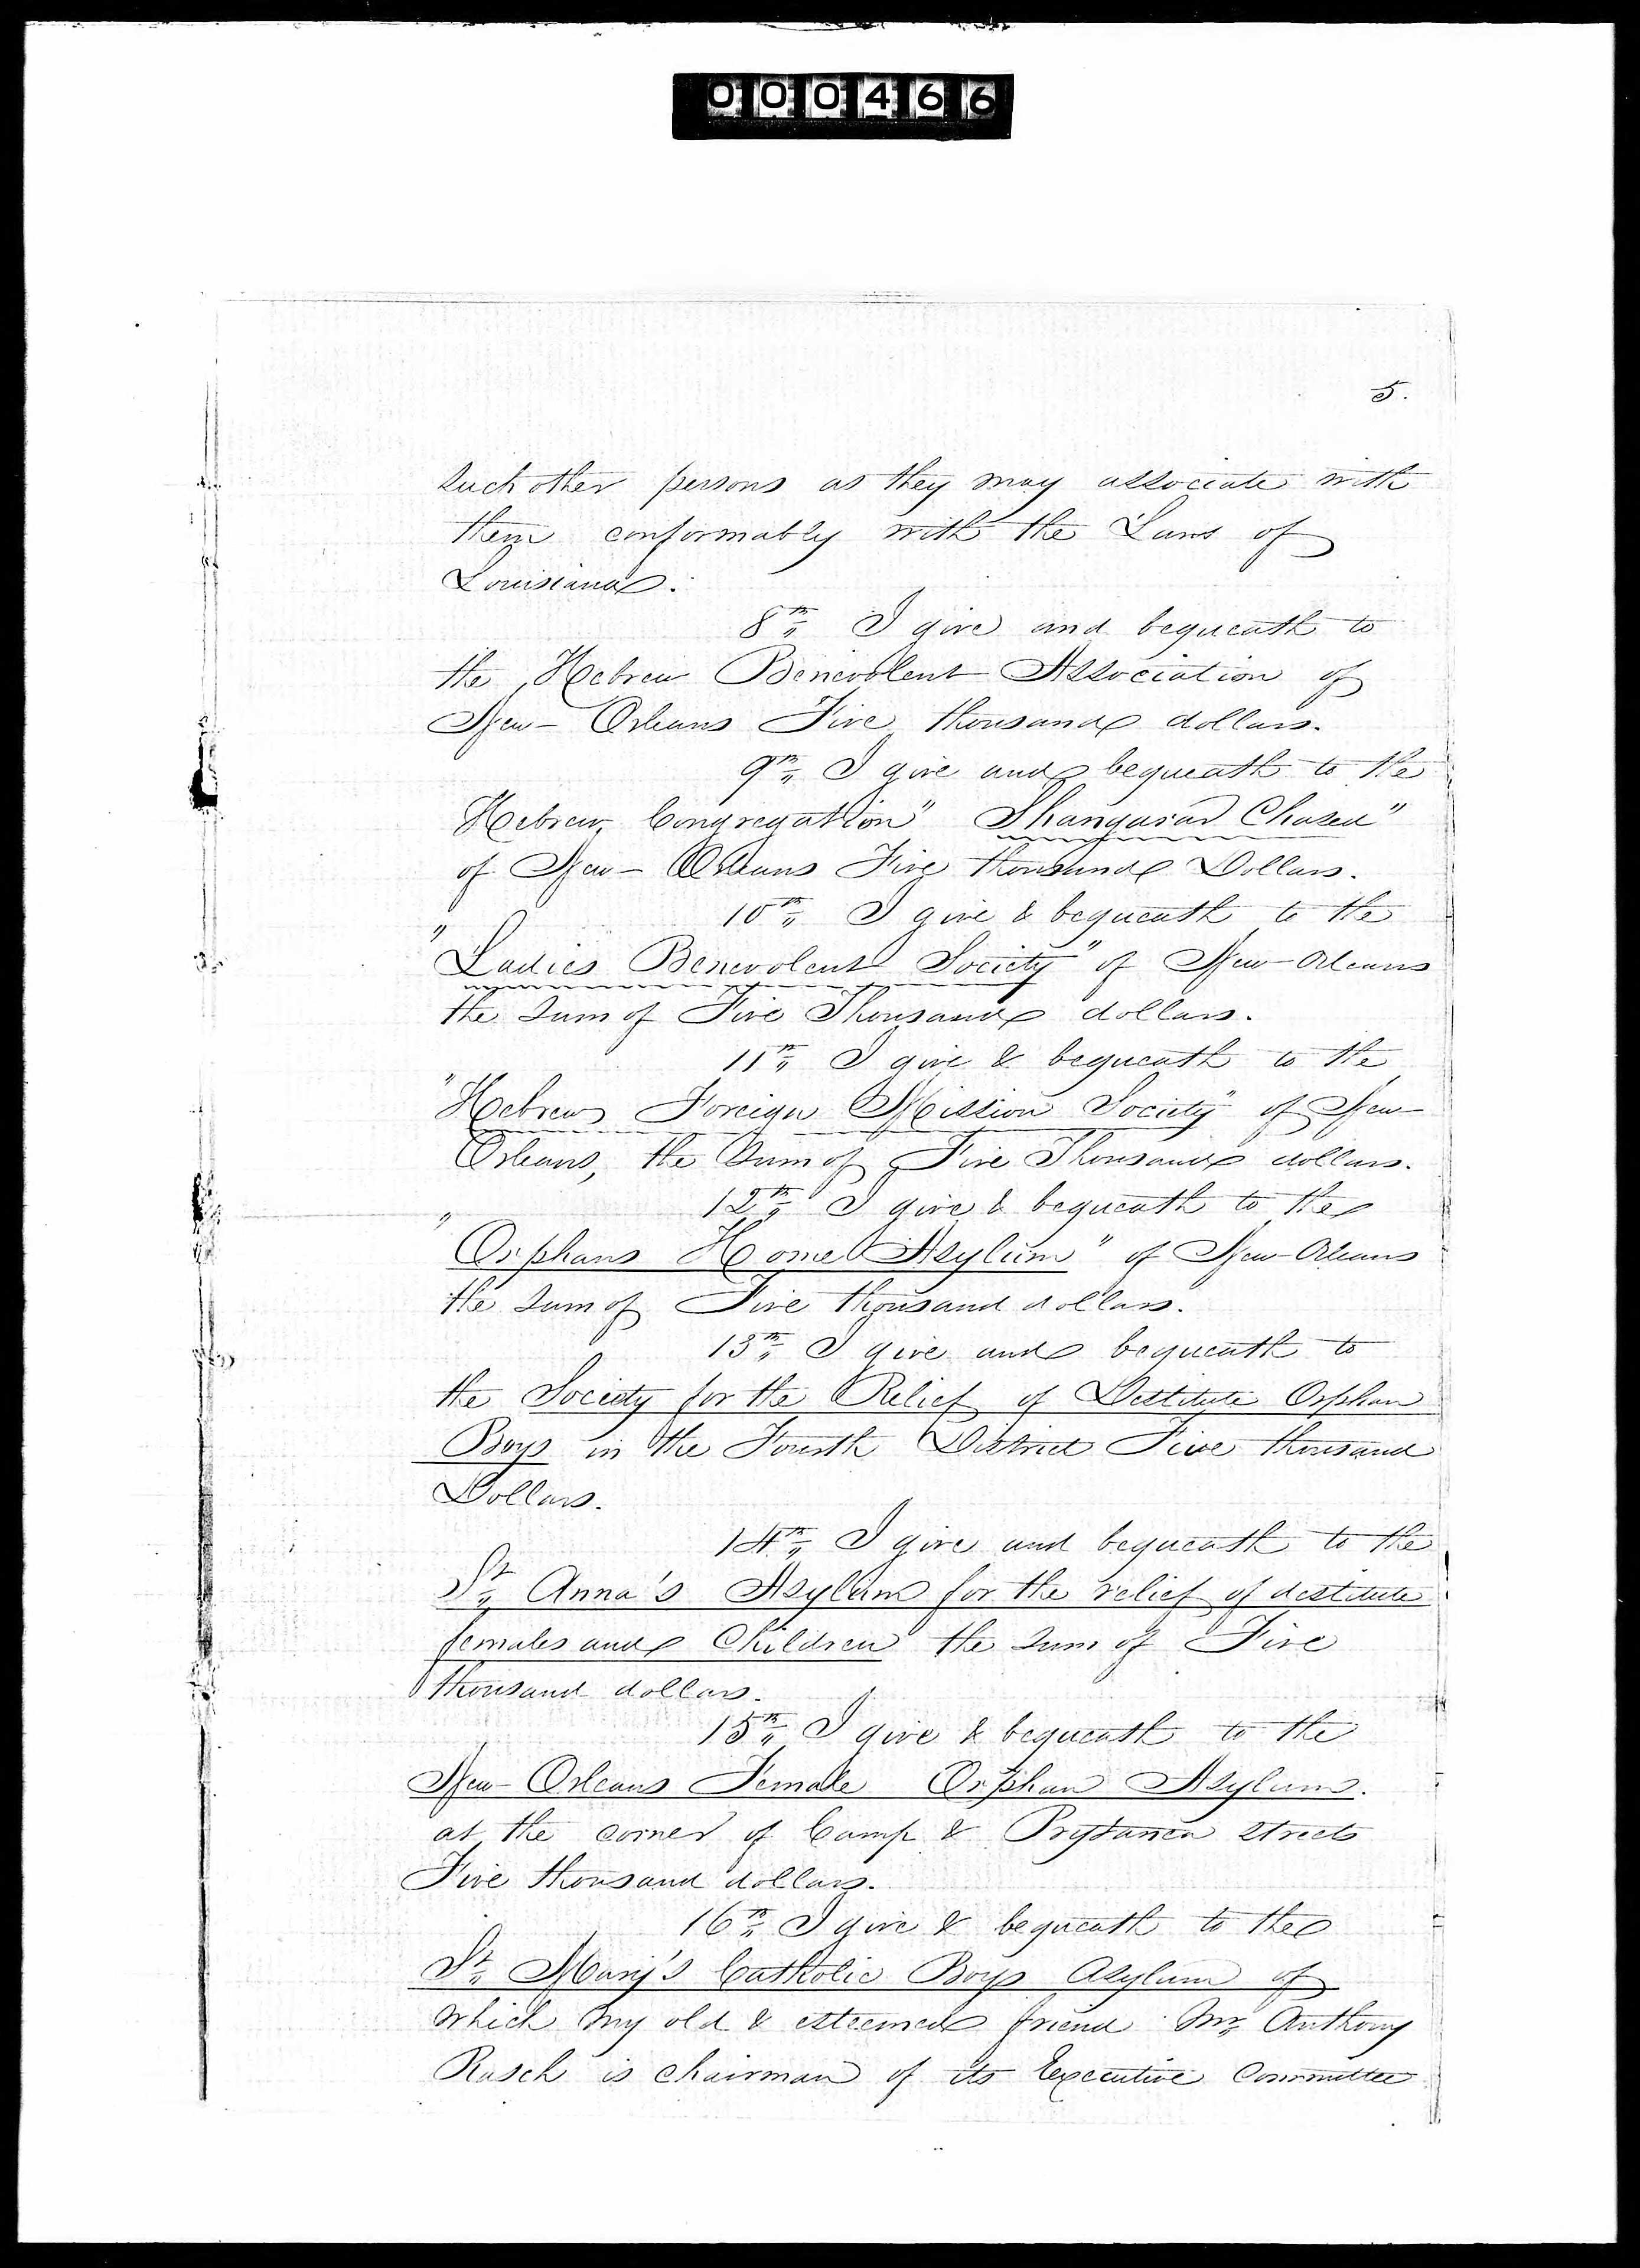 000466
5.
such other persons as they may associate with
them conformably with the Laws of
Louisiana.
8th I give and bequeath to
the Hebrew Benevolent Association of
New-Orleans Five thousand dollars.
9th I give and bequeath to the
Hebrew Congregation "Shangarai Chased"
of New-Orleans Five thousand Dollars.
10th I give & bequeath to the
"Ladies Benevolent Society" of New-Orleans
the Sum of Five Thousand dollars.
11th I give & bequeath to the
"Hebrew Foreign Mission Society" of New-
Orleans, the Sum of Five Thousand dollars.
12th I give & bequeath to the
"Orphans Home Asylum" of New-Orleans
the Sum of Five thousand dollars.
13th I give and bequeath to
the Society for the Relief of Destitute Orphan
Boys in the Fourth District Five thousand
Dollars.
14th I give and bequeath to the
St Anna's Asylum for the relief of destitute
females and Children the Sum of Five
thousand dollars.
15th I give & bequeath to the
New-Orleans Female Orphan Asylum.
at the corner of Camp & Prytanea streets
Five thousand dollars.
16th I give & bequeath to the
St Mary's Catholic Boys Asylum of
which my old & esteemed friend Mr Anthony
Rasch is chairman of its Executive Committee